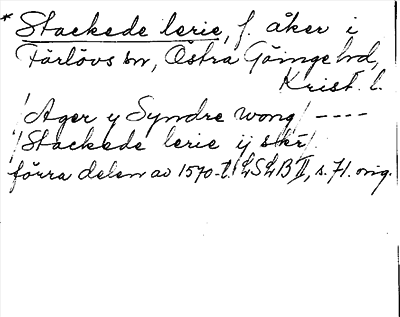 * Stackede lerie, f. åker i
Färlövs sn, Östra Göinge hd,
Krist. l.
/Ager y Syndre wong/ ----
/Stackede lerie ij skr/.
förra delen av 1570-t. LSLB II, s. 71. orig.